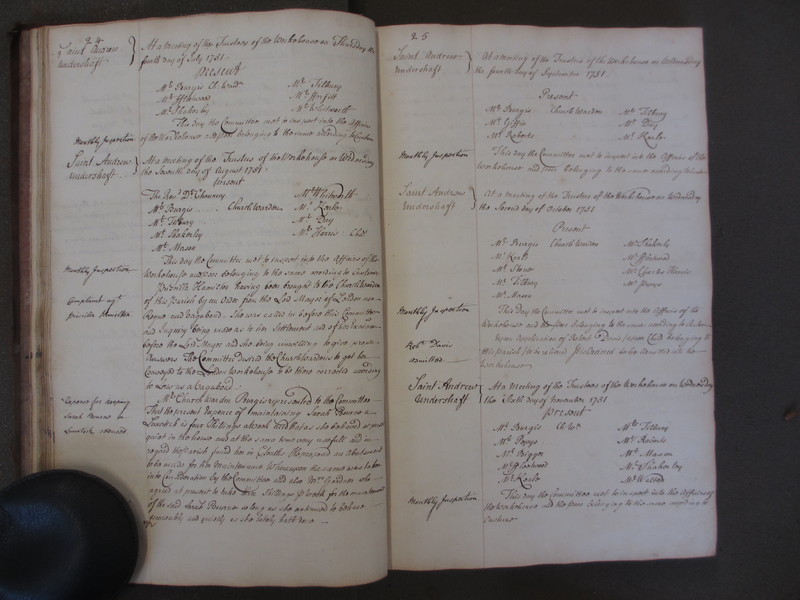 24
Saint Andrew
Undershaft
At a meeting of the Trustees of the Workhouse on Thursday the
fourth day of July 1751
Present
Mr. Burgis Ch: Ward
Mr. Tilbury
Mr. Fleetwood
Mr. Shakerley
Mr. Whitworth
This day the Committee met to inspect into the Affairs
Monthly Inspection
of the Workhouse and poor belonging to the same according to Custom
Saint Andrew
Undershaft
At a meeting of the Trustees of the Workhouse on Wednesday
the Seventh day of August 1751
Present
The Revd. Dr.
Mr. Whitworth
Mr. Burgis Church Warden
Mr. Tilbury
Mr. Day
Mr. Shakerley
Mr. Harris
Mr. Mason
This day the Committee met to inspect into the Affairs of the
Monthly Inspection
Workhouse and poor belonging to the same according to Custom
Priscilla Hamilton having been brought to the Church Warden
Complaint agt.
Priscilla Hamilton
of this Parish by an Order from the Lord Mayor of London as a
Rogue and Vagabond. She was called in before this Committee
and Enquiry being made as to her Settlement and of her
before the Lord Mayor and she being unwilling to give
Answers The Committee desired the Church Wardens to get her
Conveyed to the London Workhouse to be there corrected according
to Law as a Vagabond
Mr. Church Warden Burgis represented to the Committee
Expence for keeping
Sarah
Lunatick
That the present Expence of maintaining Sarah a
Lunatick is four Shillings a Week and that as she behaved
quiet in the house and at the same time very usefull and in
regard the Parish found her in Cloaths He proposed an Abatement
to be made for her Maintenance Whereupon the same was taken
into Consideration by the Committee and also Mrs. Gardner who
agreed at present to take Shillings P Week for the maintenance
of the said Sarah so long as she continued to behave
peaceably and quietly as she lately hath done
25
Saint Andrew
Undershaft
At a meeting of the Trustees of the Workhouse on Wednesday
the fourth day of September 1751.
Present
Mr. Burgis Church Warden
Mr. Tilbury
Mr. Giffin
Mr. Day
Mr. Roberts
Monthly Inspection
This day the Committee met to inspect into the Affairs of the
Workhouse and poor belonging to the same according to Custom
Saint Andrew
Undershaft
At a meeting of the Trustees of the Workhouse on Wednesday
the Second day of October 1751
Present
Mr. Burgis Church Warden
Mr. Shakerly
Mr. Fleetwood
Mr. Stone
Mr. Charles Harris
Mr. Tilbury
Mr. Pepys
Mr. Mason
Monthly Inspection
This day the Committee met to inspect into the Affairs of the
Workhouse and the poor belonging to the same according to Custom
Robt. Davis
admitted
Upon Application of Robert Davis a poor Child belonging to
this Parish to be relieved Ordered he be admitted into the
Workhouse
Saint Andrew
Undershaft
At a Meeting of the Trustees of the Workhouse on Wednesday
the Sixth day of November 1751
Present
Mr. Burgis Ch: War:
Mr. Tilbury
Mr. Pepys
Mr. Roberts
Mr. Bigger
Mr. Mason
Mr. Fleetwood
Mr. Shakerley
Monthly Inspection
This day the Committee met to inspect into the Affairs of
the Workhouse and the poor belonging to the same according to
Custom